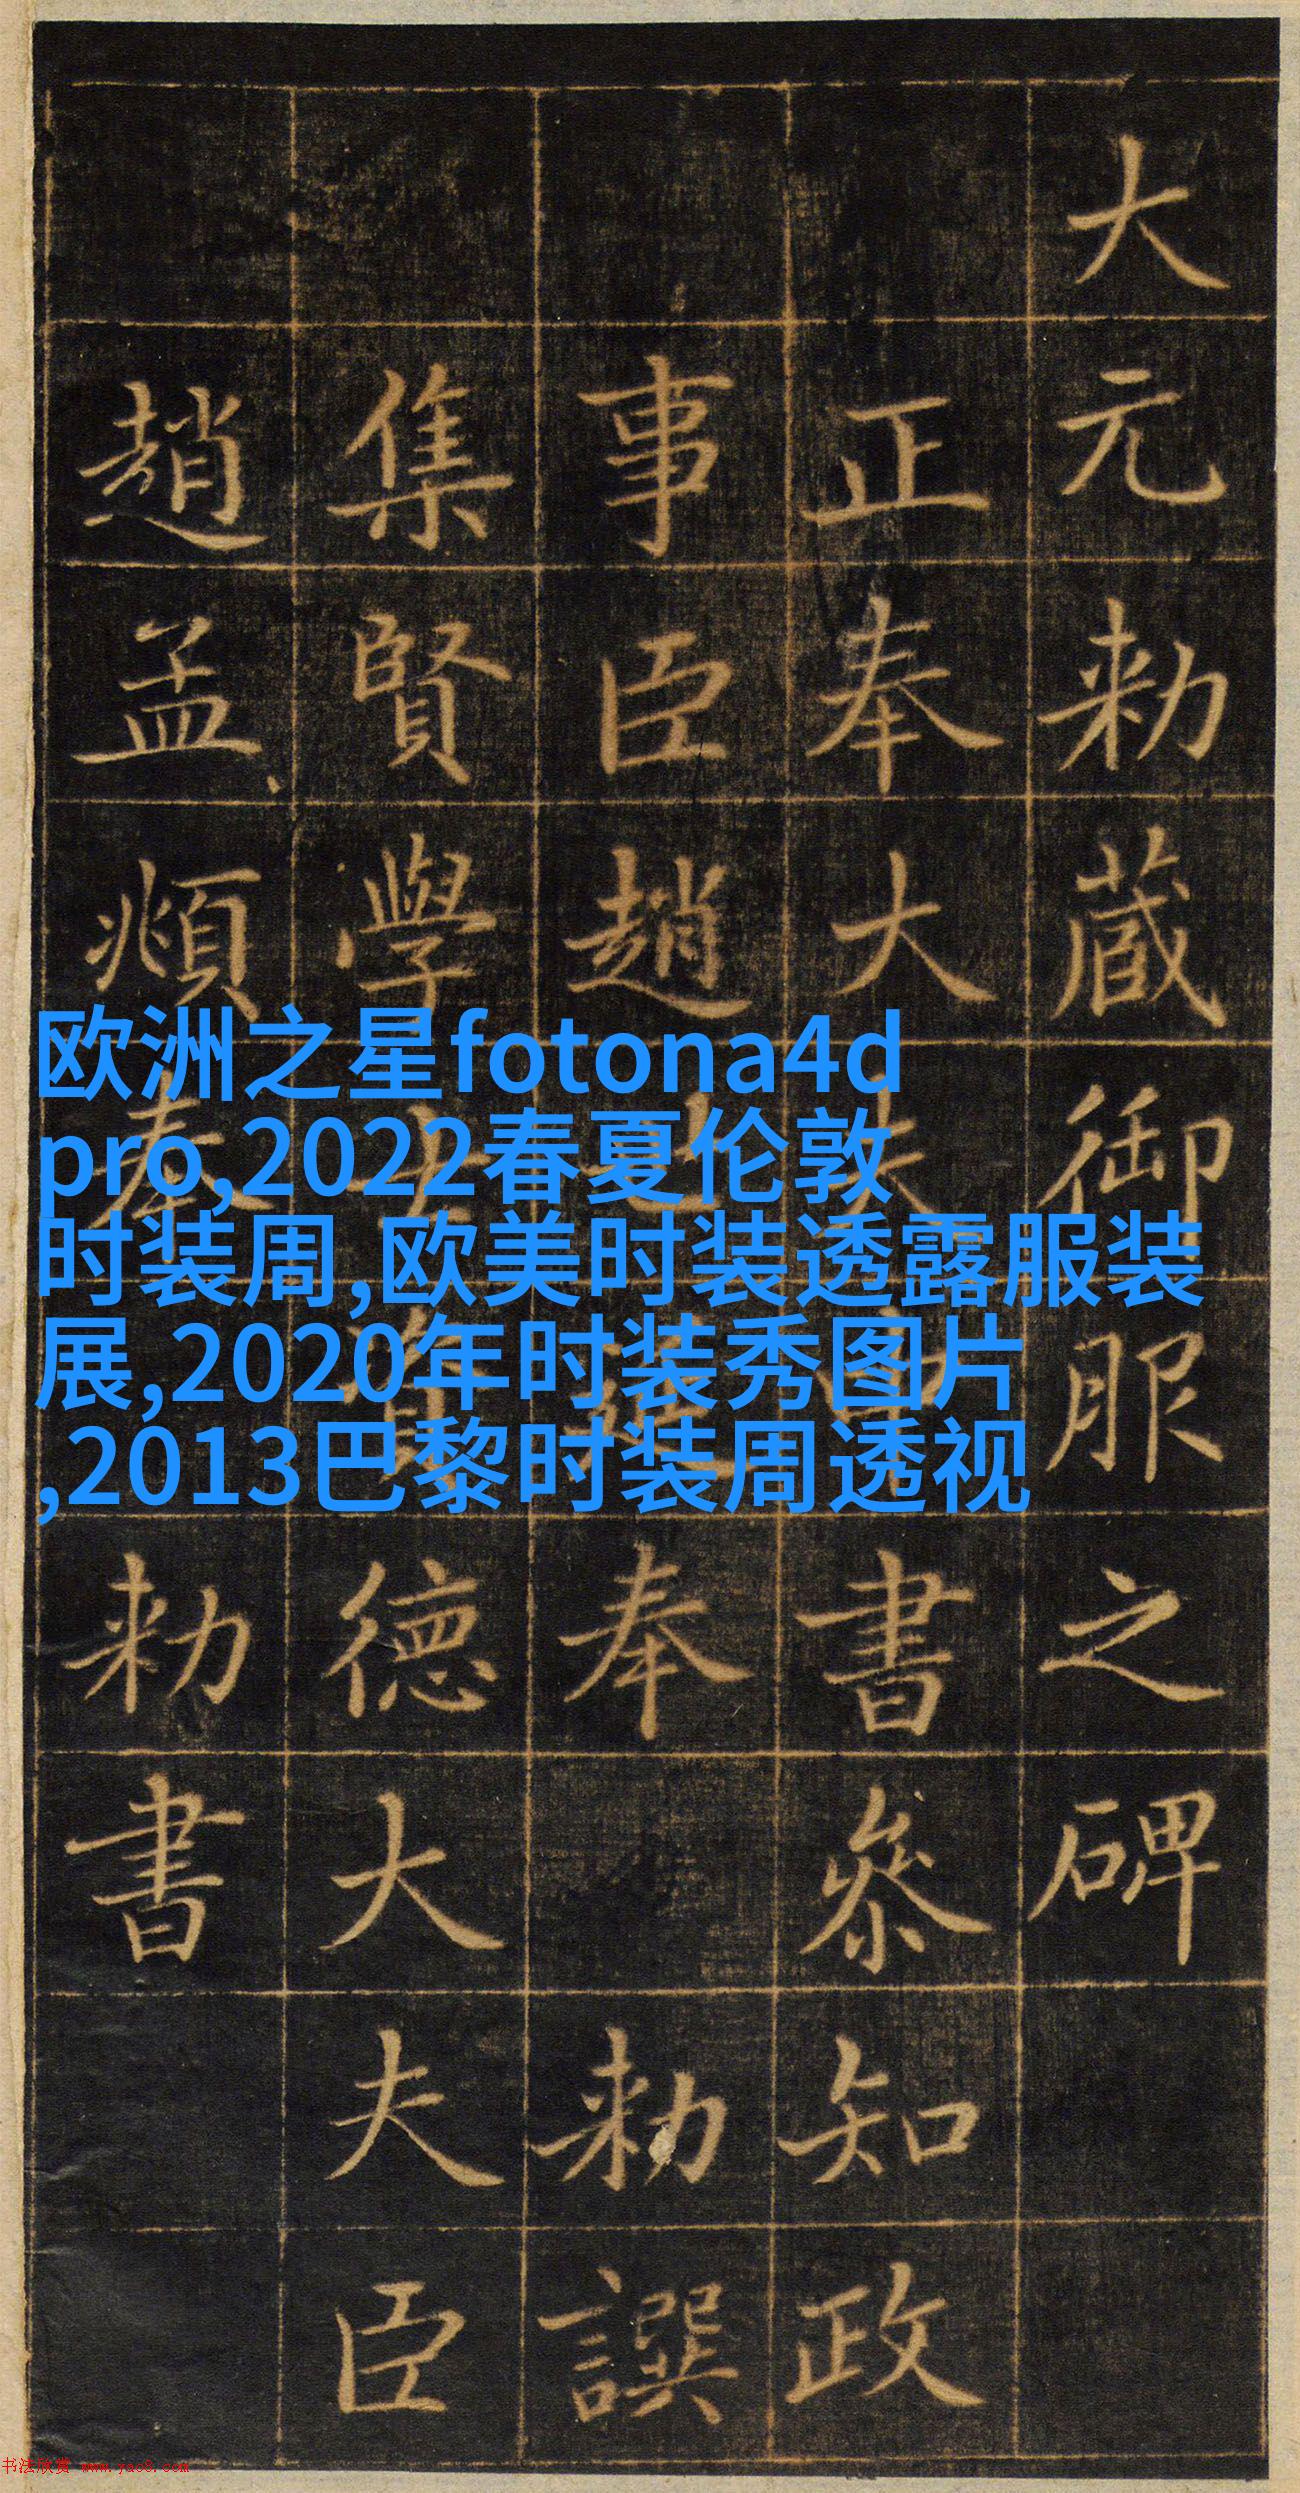 大元勑藏御服之碑
正奉大夫中書參知政
事臣趙世延奉勑譔
集賢學士資德大夫臣
趙孟頫奉勑書
欧洲之星fotona4d
pro,2022春夏伦敦
时装周,欧美时装透露服装
展,2020年时装秀图片
,2013巴黎时装周透视
书法欣赏 www.yac8.com